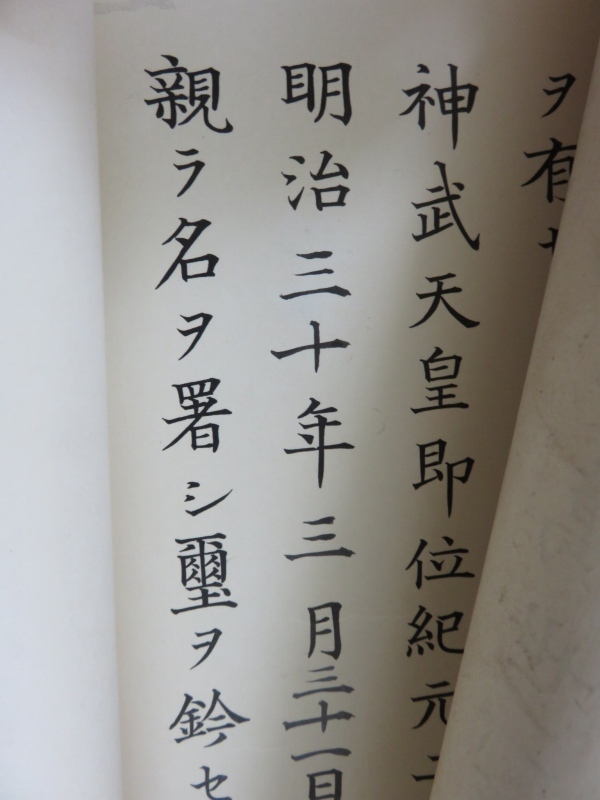 ヲ有
神武天皇即位紀元二
明治三十年三月三十一日
親ラ名ヲ署シ璽ヲ鈐セ